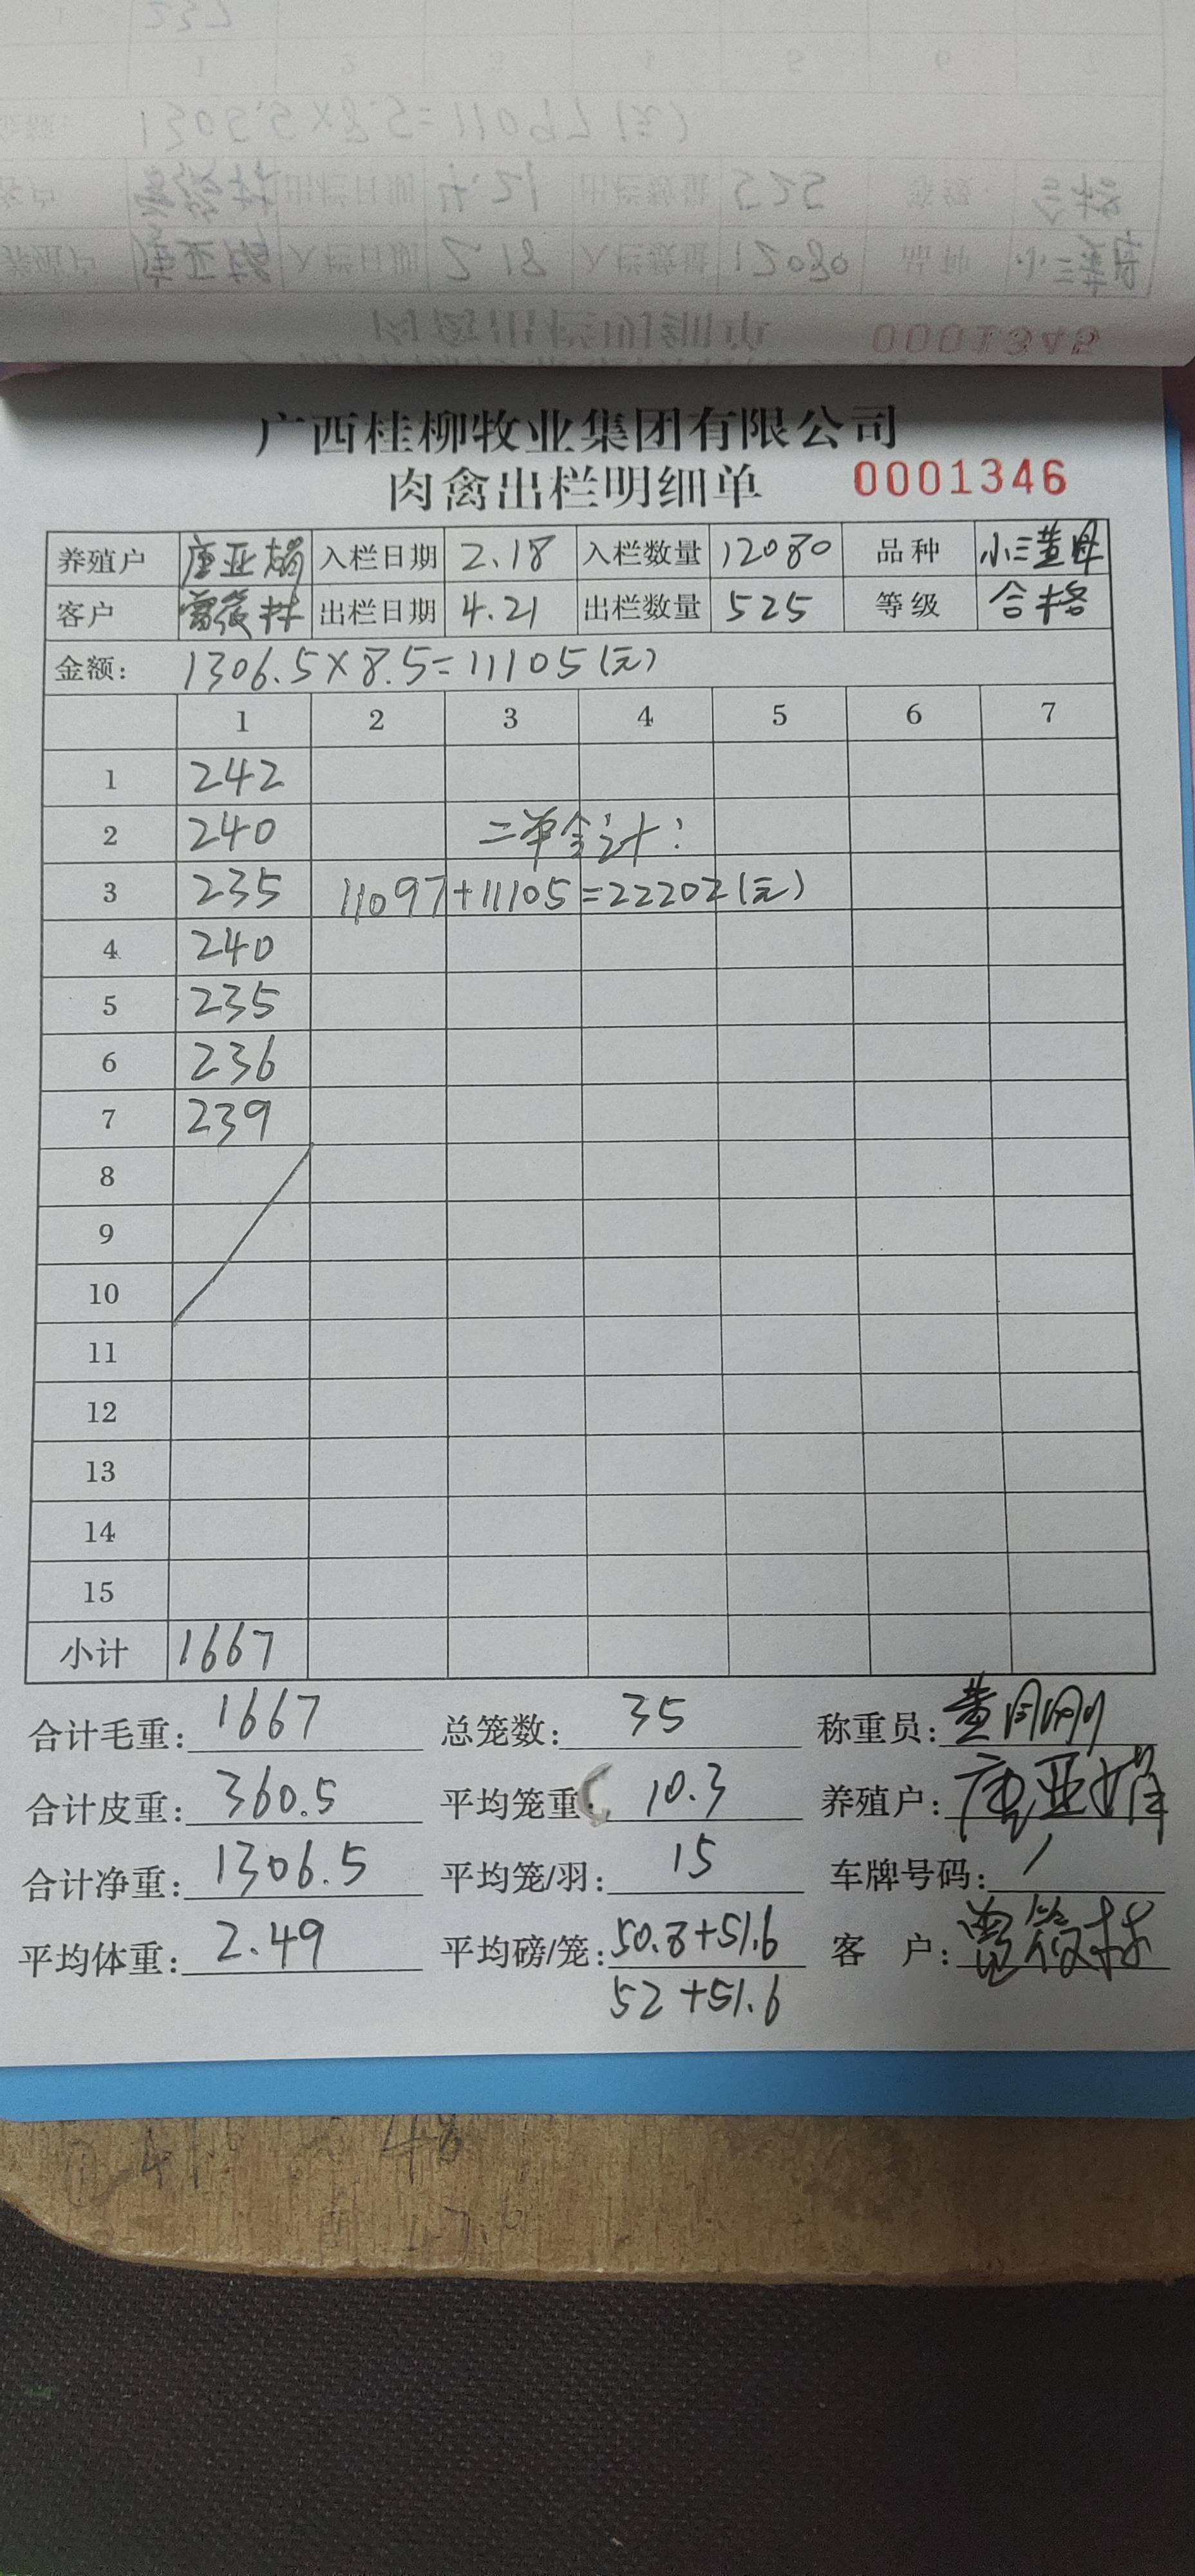 0001345
广西桂柳牧业集团有限公司
肉禽出栏明细单 0001346
养殖户 唐亚娟 入栏日期 2.18 入栏数量 12080 品种 小三黄母
客户 曾筱林 出栏日期 4.21 出栏数量 525 等级 合格
金额: 1306.5×8.5=11105(元)
1 2 3 4 5 6 7
1 242
2 240 二单合计:
3 235 11097+11105=22202(元)
4 240
5 235
6 236
7 239
8
9
10
11
12
13
14
15
小计 1667
合计毛重: 1667 总笼数: 35 称重员: 黄
合计皮重: 360.5 平均笼重: 10.3 养殖户: 唐亚娟
合计净重: 1306.5 平均笼/羽: 15 车牌号码: /
平均体重: 2.49 平均磅/笼: 50.8+51.6 客户: 曾筱林
52+51.6
48